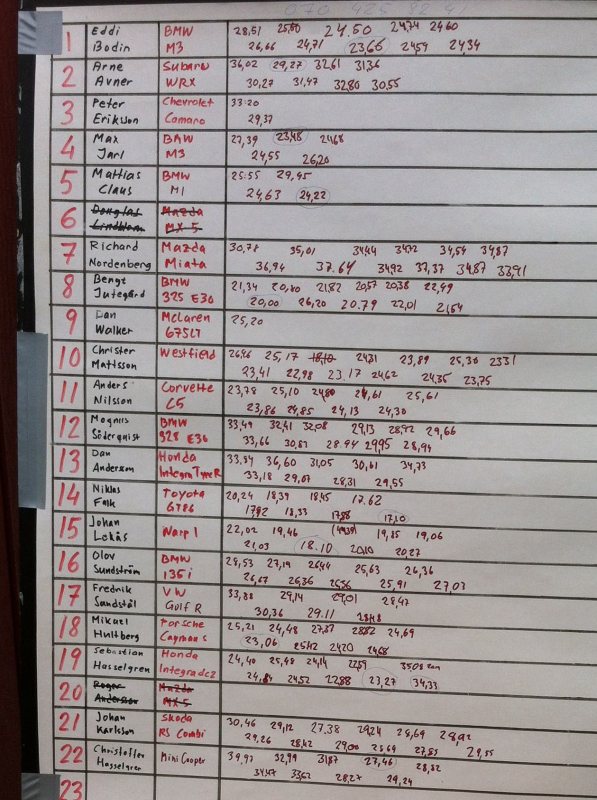 1 Eddi BMW 28,51 25,80 24.50 24,74 24,60
Bodin M3 26,66 24,71 23,66 24,59 24,34
2 Arne Subaru 36,02 29,27 32,61 31,36
Avner WRX 30,27 31,47 32,80 30,55
3 Peter Chevrolet 33.20
Eriksson Camaro 29,37
4 Max BMW 27,39 23,48 24,68
Jarl M3 24,55 26,20
5 Mattias BMW 25.55 29,95
Claus M1 24,63 24,22
6 Douglas Mazda
Lindblom MX 5
7 Richard Mazda 30,78 35,01 34,44 34,72 34,54 34,87
Nordenberg Miata 36,94 37.64 34,92 37,37 34,87 33,91
8 Bengt BMW 21,34 20,80 21,82 20,57 20,38 22,49
Jutegård 325 E30 20,00 26,20 20.79 22,01 21,54
9 Dan McLaren 25,20
Walker 675LT
10 Christer Westfield 26,46 25,17 18,10 24,31 23,89 25,30 23,31
Mattsson 23,41 22,98 23.17 24,62 24,35 23,75
11 Anders Corvette 23,78 25,10 24,80 24,61 25,61
Nilsson C5 23,86 24,85 24,13 24,30
12 Magnus BMW 33,49 32,41 32,08 29,13 28,92 29,66
Söderquist 328 E36 33,66 30,87 28.94 29,95 28,94
13 Dan Honda 33,84 36,60 31,05 30,61 34,73
Andersson Integra Type R 33,18 29,07 28,31 29,55
14 Niklas Toyota 20,24 18,39 18,45 17.62
Falk GT86 17,92 18,33 17,88 17,10
15 Johan Warp 1 22,02 19,46 19,85 19,06
Lekås 21,03 18.10 20,10 20,27
16 Olov BMW 28,53 27,19 26,44 25,63 26,36
Sundström 135 i 26,67 26,36 25,56 25,91 27,03
17 Fredrik VW 33,88 29,14 29,01 28,47
Sandstål Golf R 30,36 29.11 28,48
18 Mikael Porsche 25,21 24,48 27,87 28,82 24,69
Hultberg Cayman S 23,06 25,42 24,20 24,68
19 Sebastian Honda 24,40 25,48 24,14 22,59
Hasselgren Integra dc2 24,84 24,52 22,88 23,27 34,33
20 Roger Mazda
Andersson MX 5
21 Johan Skoda 30,46 29,12 27.38 29,24 28,69 28,92
Karlsson RS Combi 29,26 28,42 29,00 28,69 27,85 29,55
22 Christoffer Mini Cooper 39,97 32,99 31,87 27,46 28,82
Hasselgren 34,47 33,62 28,27 29,24
23